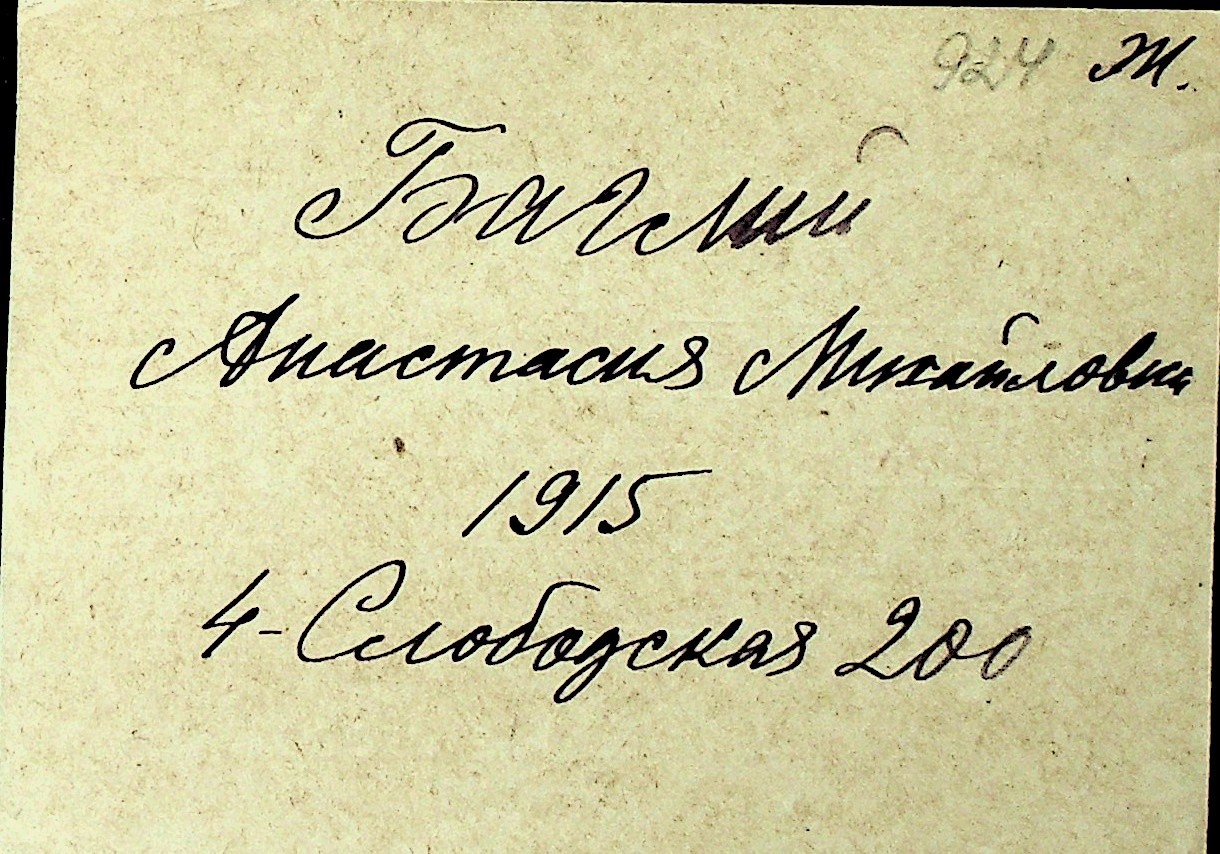 924 Ж.
Баглий
Анастасия Михайловна
1915
4-Слободская 200